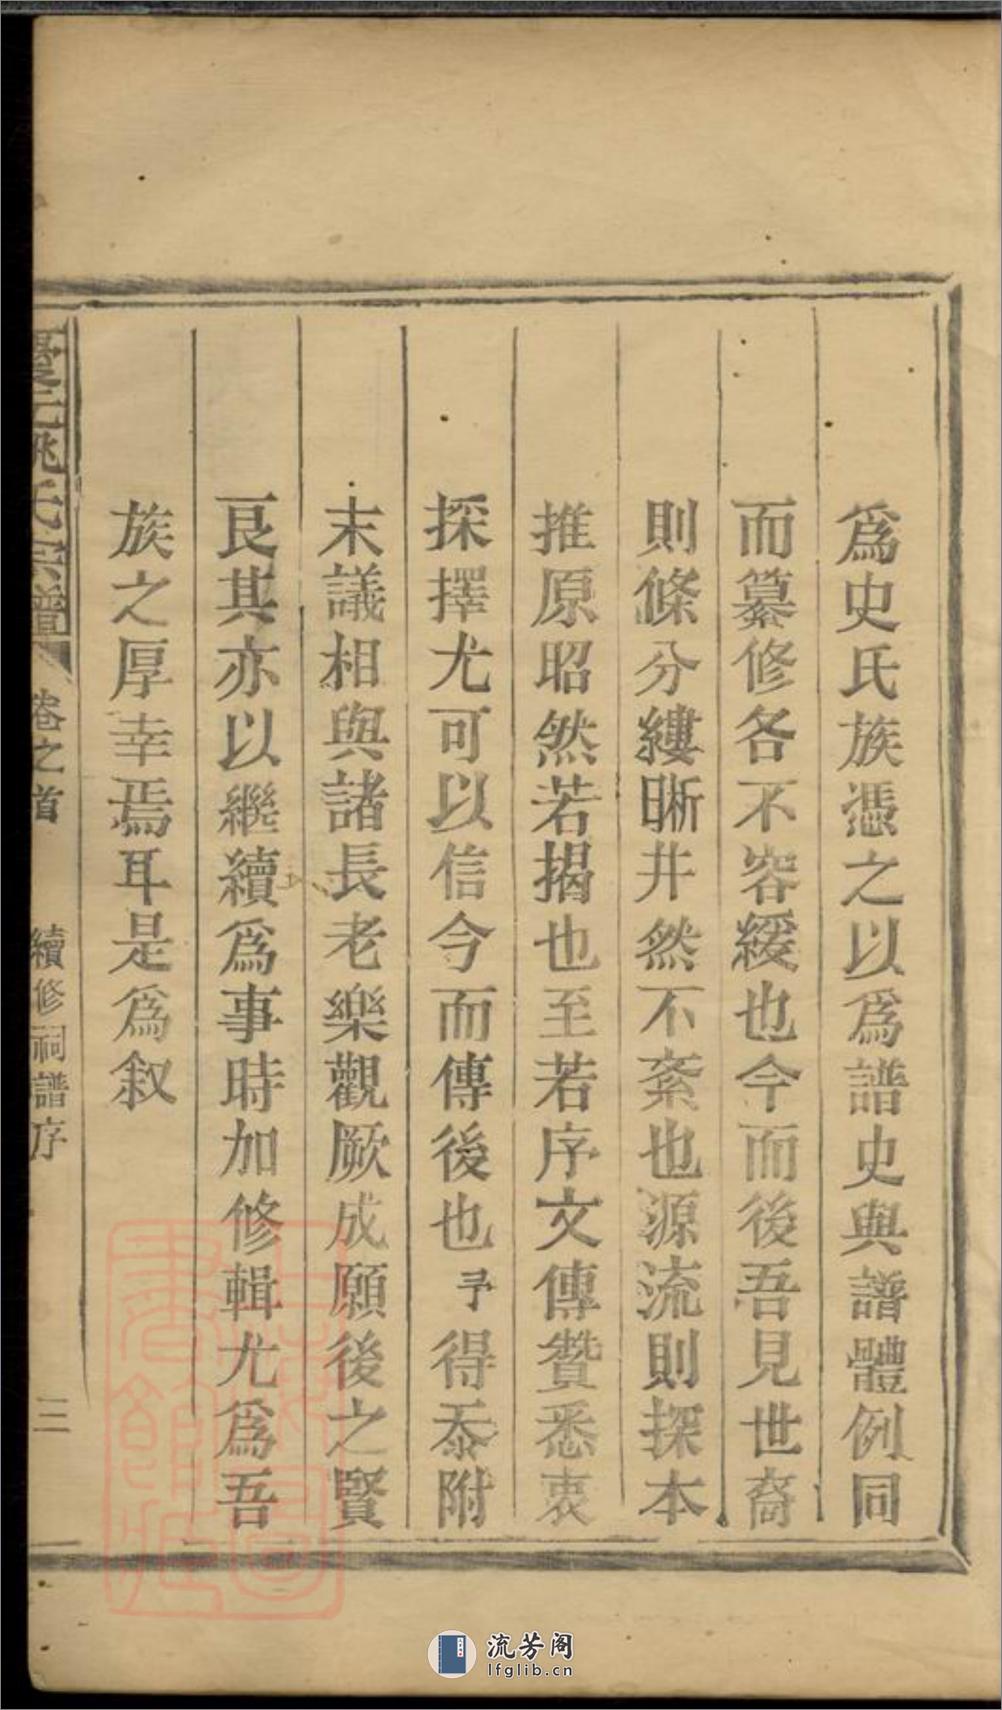 爲史氏族憑之以爲譜史與譜體例同
而纂修各不容緩也今而後吾見世裔
則條分縷晰井然不紊也源流則探本
推原昭然若揭也至若序文傳贊悉衷
採擇尤可以信今而傳後也予得忝附
末議相與諸長老樂觀厥成願後之賢
良其亦以繼續爲事時加修輯尤爲吾
族之厚幸焉耳是爲叙
姚氏宗譜 卷之首 續修祠譜序 三
流芳阁
lfglib.cn